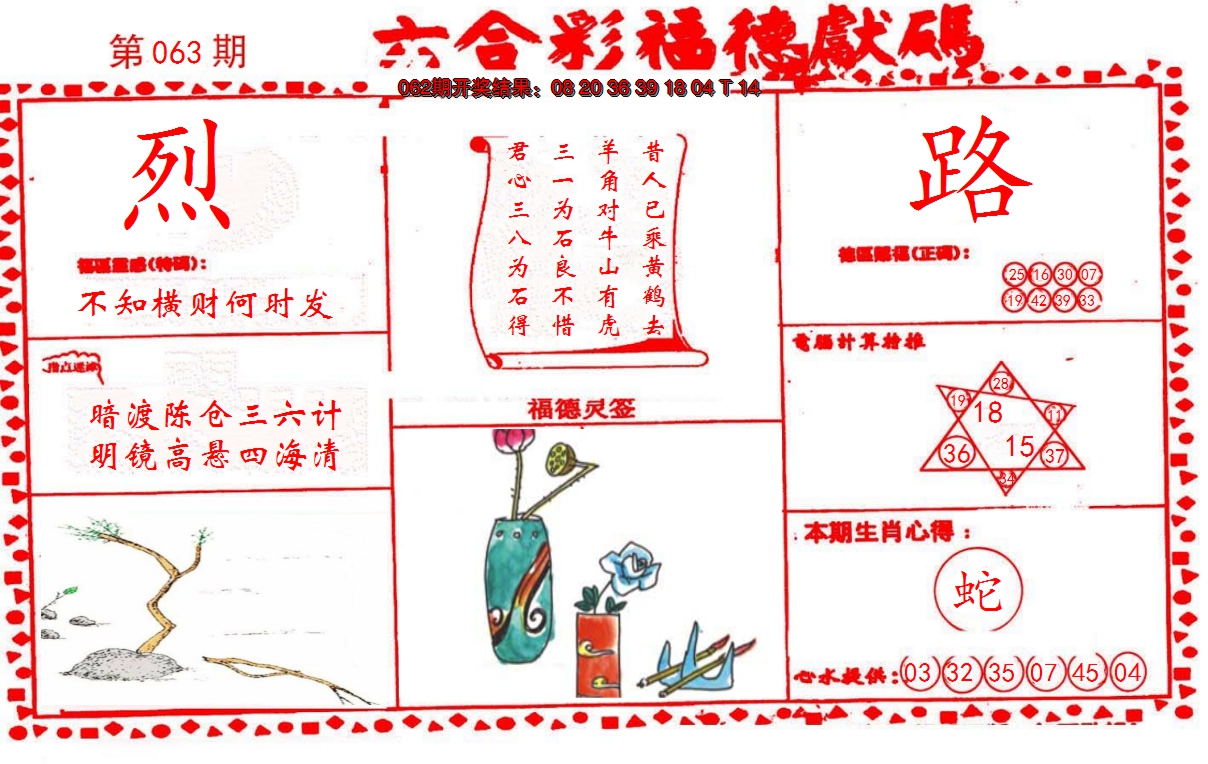 第 063 期
六合彩福德獻碼
062期开奖结果：08 20 36 39 18 04 T 14
烈
福區靈感(特碼)：
不知横财何时发
指点迷津
暗渡陈仓三六计
明镜高悬四海清
昔人已乘黄鹤去
羊角对牛山有虎
三一为石良不惜
君心三八为石得
福德灵签
路
德區賜福(正碼)：
25 16 30 07
19 42 39 33
電腦计算拴推
28
19 18 11
36 15 37
34
本期生肖心得：
蛇
心水提供：03 32 35 07 45 04